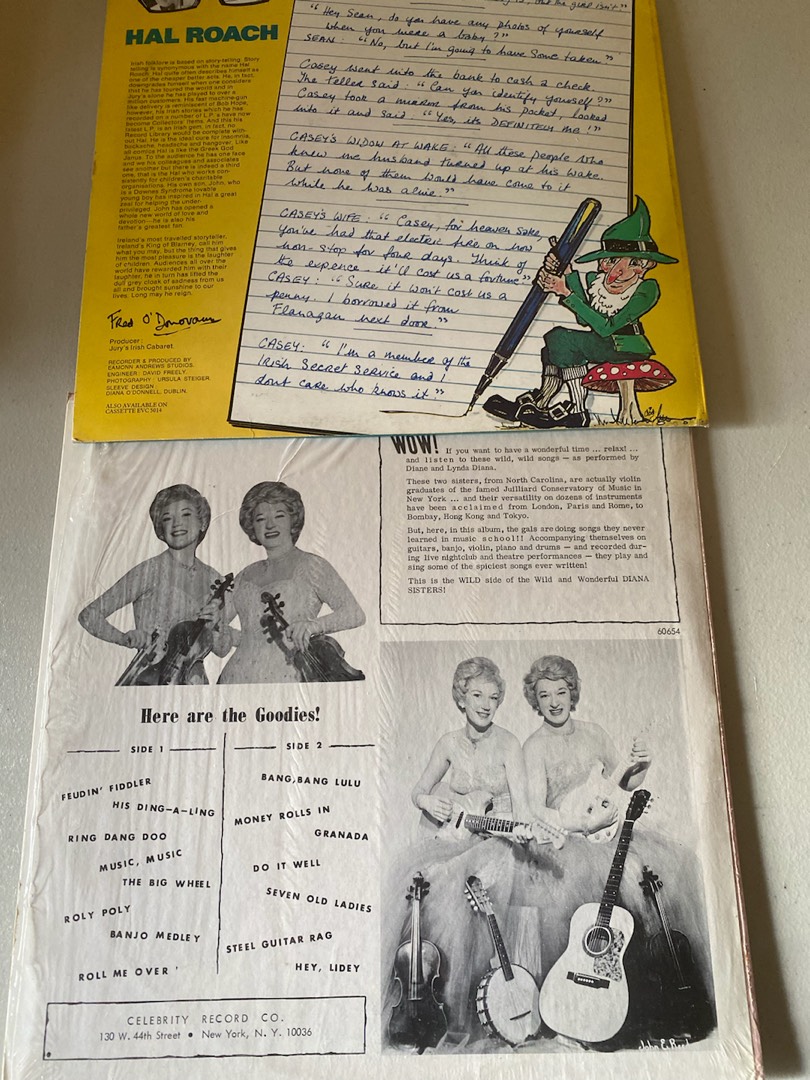 but the girl isn't"
"Hey Sean, do you have any photos of yourself
when you were a baby?"
SEAN: "No, but I'm going to have some taken"
Casey went into the bank to cash a check.
The teller said: "Can you identify yourself?"
Casey took a mirror from his pocket, looked
into it and said: "Yes, its DEFINITELY me!"
CASEY'S WIDOW AT WAKE: "All these people who
knew me husband turned up at his wake.
But none of them would have come to it
while he was alive."
CASEY'S WIFE: "Casey, for heaven sake,
you've had that electric fire on now
non-stop for four days. Think of
the expence. it'll cost us a fortune"
CASEY: "Sure it won't cost us a
penny. I borrowed it from
Flanagan next door"
CASEY: "I'm a member of the
Irish Secret Service and I
dont care who knows it"
HAL ROACH
Irish folklore is based on story-telling. Story
telling is synonymous with the name Hal
Roach. Hal quite often describes himself as
one of the cheaper better acts. He, in fact,
downgrades himself when one considers
that he has toured the world and in
Jury's alone he has played to over a
million customers. His fast machine-gun
like delivery is reminiscent of Bob Hope,
however, his Irish stories which he has
recorded on a number of L.P.'s have now
become Collectors' Items. And this his
latest L.P. is an Irish gem, in fact, no
Record Library would be complete with-
out Hal. He is the ideal cure for insomnia,
backache, headache and hangover. Like
all comics Hal is like the Greek God
Janus. To the audience he has one face
and we his colleagues and associates
see another but there is indeed a third
one, that is the Hal who works con-
sistently for children's charitable
organisations. His own son, John, who
is a Downes Syndrome lovable
young boy has inspired in Hal a great
zeal for helping the under-
privileged. John has opened a
whole new world of love and
devotion — he is also his
father's greatest fan.
Ireland's most travelled storyteller,
Ireland's King of Blarney, call him
what you may, but the thing that gives
him the most pleasure is the laughter
of children. Audiences all over the
world have rewarded him with their
laughter, he in turn has lifted the
dull grey cloak of sadness from us
all and brought sunshine to our
lives. Long may he reign.
Fred O'Donovan
Producer:
Jory's Irish Cabaret.
RECORDER & PRODUCED BY
EAMONN ANDREWS STUDIOS.
ENGINEER: DAVID FREELY.
PHOTOGRAPHY: URSULA STEIGER.
SLEEVE DESIGN
DIANA O'DONNELL, DUBLIN.
ALSO AVAILABLE ON
CASSETTE EVC 3014
WOW! If you want to have a wonderful time ... relax! ...
and listen to these wild, wild songs — as performed by
Diane and Lynda Diana.
These two sisters, from North Carolina, are actually violin
graduates of the famed Juilliard Conservatory of Music in
New York ... and their versatility on dozens of instruments
have been acclaimed from London, Paris and Rome, to
Bombay, Hong Kong and Tokyo.
But, here, in this album, the gals are doing songs they never
learned in music school!!! Accompanying themselves on
guitars, banjo, violin, piano and drums — and recorded dur-
ing live nightclub and theatre performances — they play and
sing some of the spiciest songs ever written!
This is the WILD side of the Wild and Wonderful DIANA
SISTERS!
60654
Here are the Goodies!
SIDE 1
FEUDIN' FIDDLER
HIS DING-A-LING
RING DANG DOO
MUSIC, MUSIC
THE BIG WHEEL
ROLY POLY
BANJO MEDLEY
ROLL ME OVER
SIDE 2
BANG, BANG LULU
MONEY ROLLS IN
GRANADA
DO IT WELL
SEVEN OLD LADIES
STEEL GUITAR RAG
HEY, LIDEY
CELEBRITY RECORD CO.
130 W. 44th Street • New York, N. Y. 10036
John E. Reed